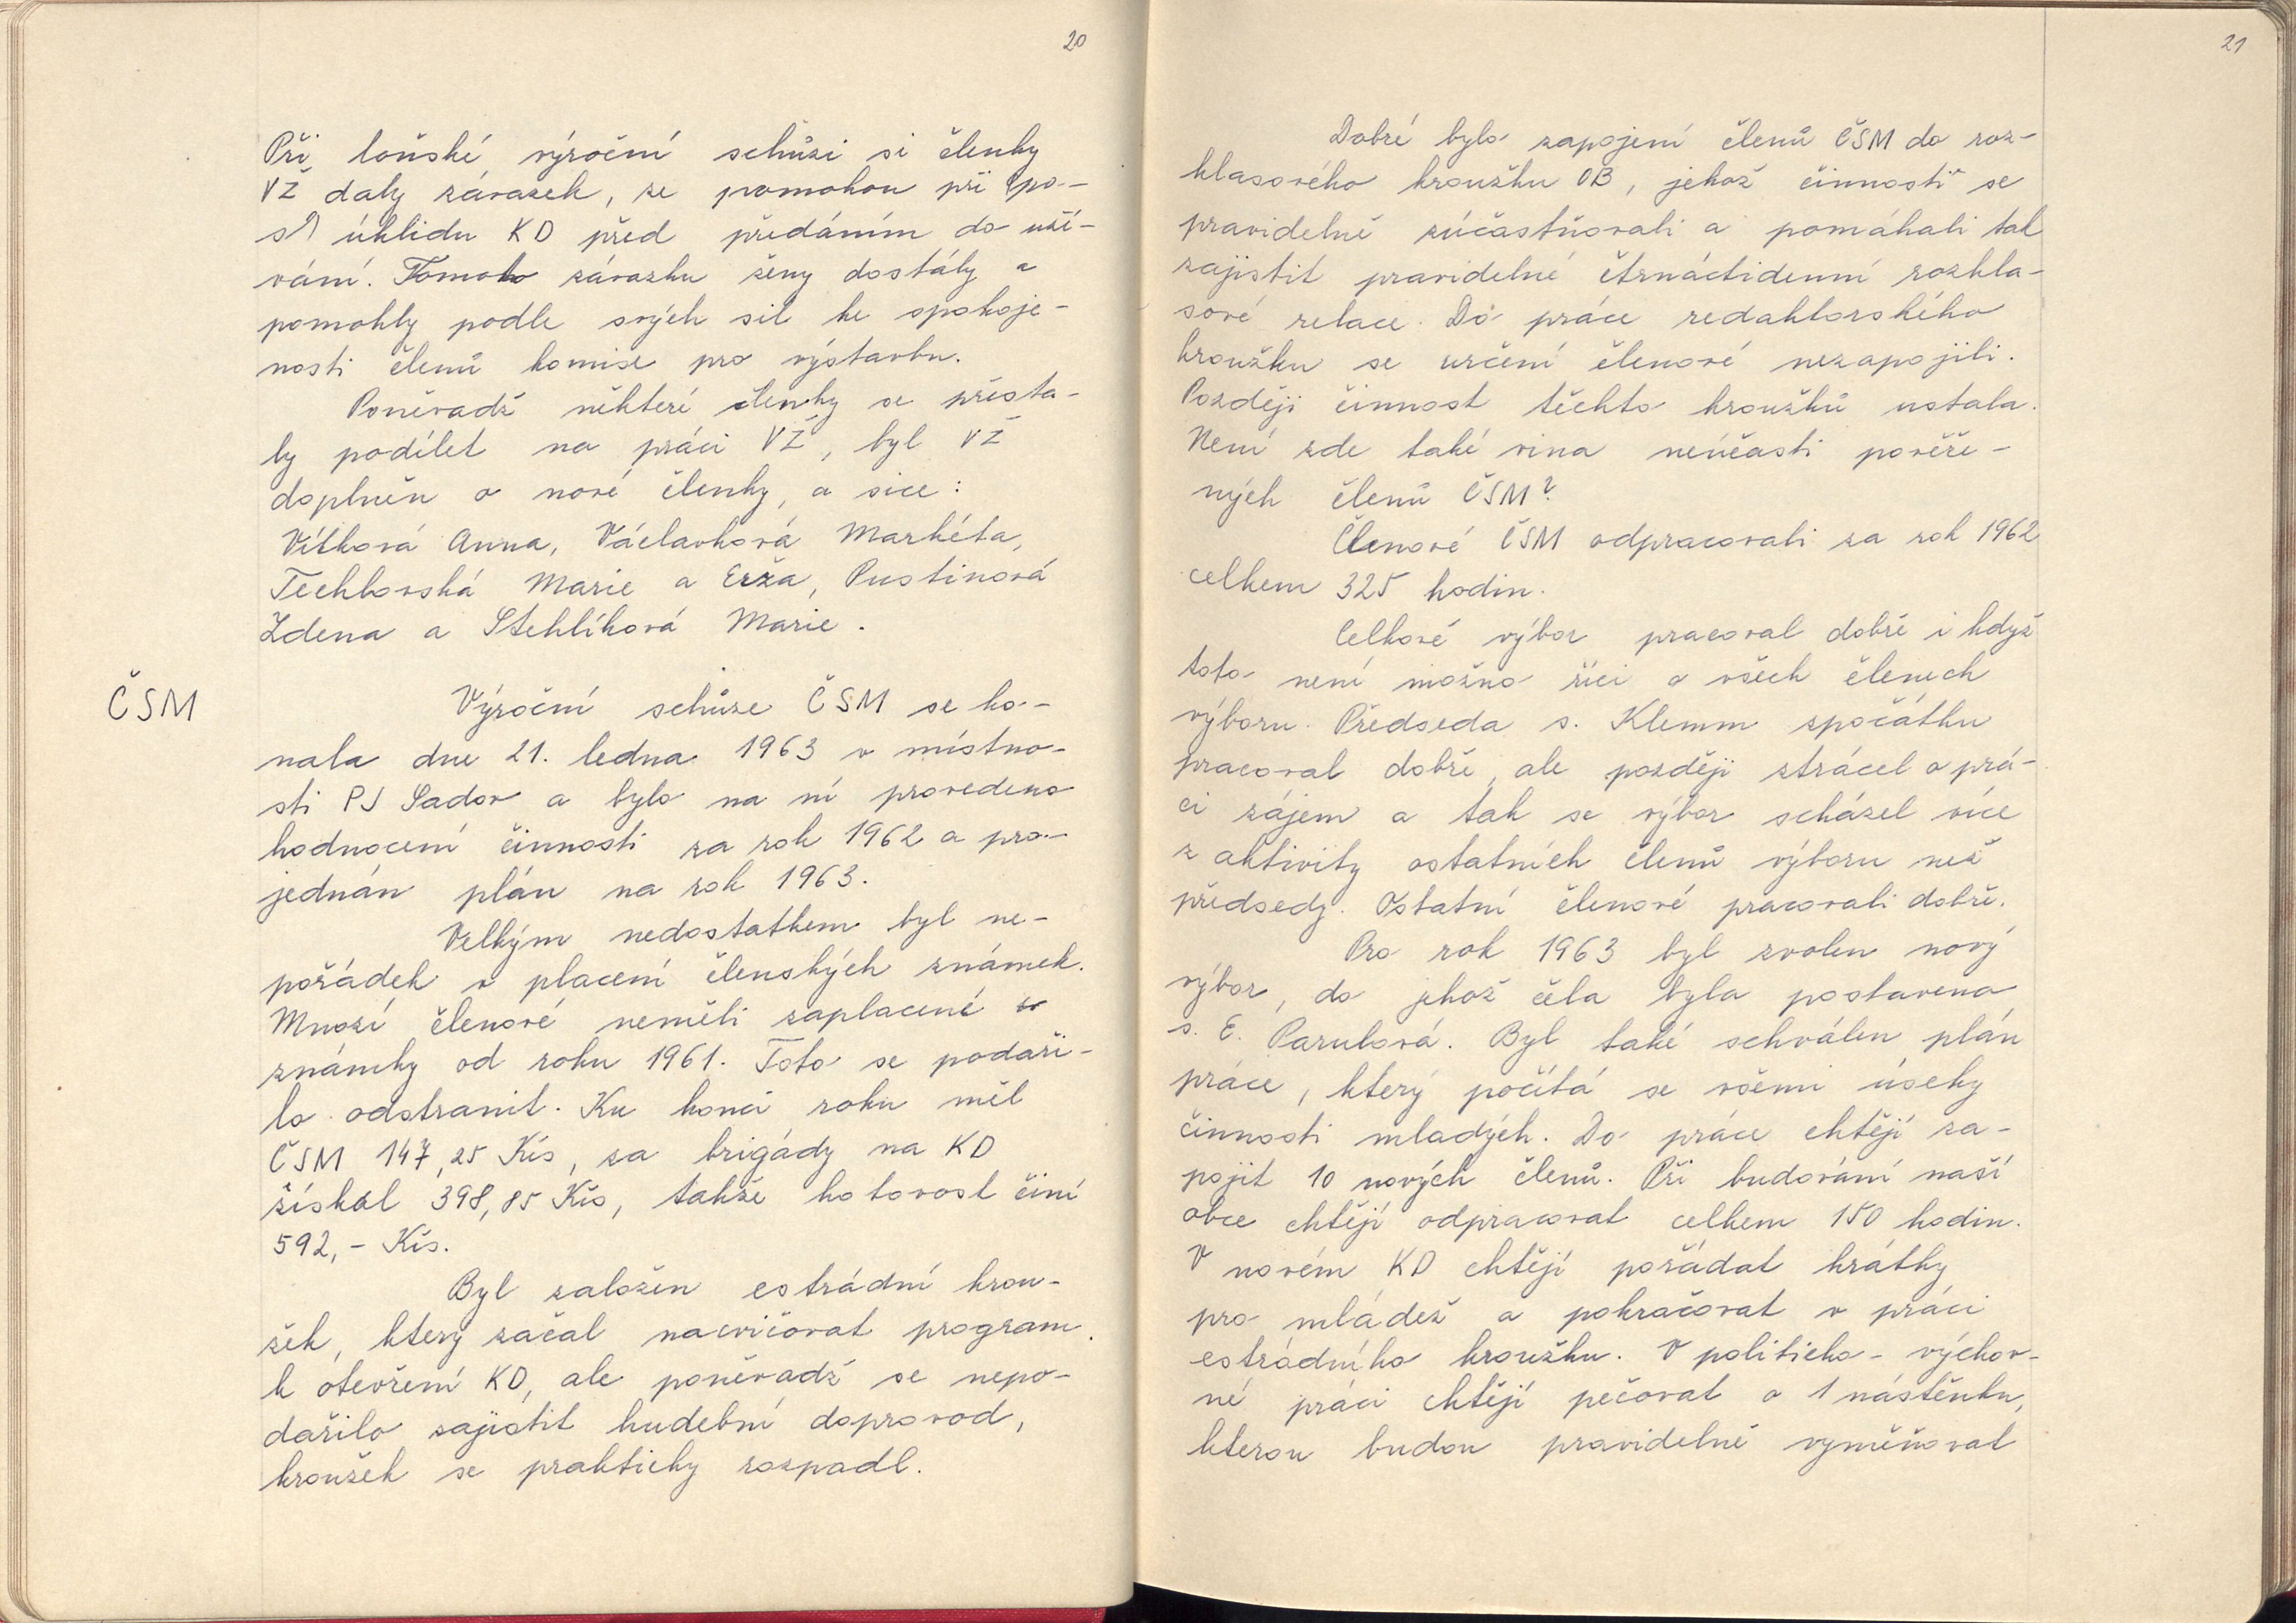 20
Při loňské výroční schůzi si členky
VŽ daly závazek, že pomohou při
úklidu KD před předáním do uží-
vání. Tomuto závazku ženy dostály a
pomohly podle svých sil ke spokoje-
nosti členů komise pro výstavbu.
Poněvadž některé členky se přesta-
ly podílet na práci VŽ, byl VŽ
doplněn o nové členky, a sice:
Vítková Anna, Václavková Markéta,
Techlovská Marie a Erža, Pustinová
Zdena a Stehlíková Marie.
ČSM
Výroční schůze ČSM se ko-
nala dne 21. ledna 1963 v místno-
sti PJ Sadov a bylo na ní provedeno
hodnocení činnosti za rok 1962 a pro-
jednán plán na rok 1963.
Velkým nedostatkem byl ne-
pořádek v placení členských známek.
Mnozí členové neměli zaplacené
známky od roku 1961. Toto se podaři-
lo odstranit. Ku konci roku měl
ČSM 147,25 Kčs, za brigády na KD
získal 398,85 Kčs, takže hotovost činí
592,- Kčs.
Byl založen estrádní krou-
žek, který začal nacvičovat program
k otevření KD, ale poněvadž se nepo-
dařilo zajistit hudební doprovod,
kroužek se prakticky rozpadl.
21
Dobré bylo zapojení členů ČSM do roz-
hlasového kroužku OB, jehož činnosti se
pravidelně zúčastňovali a pomáhali tak
zajistit pravidelné čtrnáctidenní rozhla-
sové relace. Do práce redaktorského
kroužku se určení členové nezapojili.
Později činnost těchto kroužků ustala.
Není zde také vina neúčasti pověře-
ných členů ČSM?
Členové ČSM odpracovali za rok 1962
celkem 325 hodin.
Celkově výbor pracoval dobře i když
toto není možno říci o všech členech
výboru. Předseda s. Klemm zpočátku
pracoval dobře, ale později ztrácel o prá-
ci zájem a tak se výbor scházel více
z aktivity ostatních členů výboru než
předsedy. Ostatní členové pracovali dobře.
Pro rok 1963 byl zvolen nový
výbor, do jehož čela byla postavena
s. E. Parubová. Byl také schválen plán
práce, který počítá se všemi úseky
činnosti mladých. Do práce chtějí za-
pojit 10 nových členů. Při budování naší
obce chtějí odpracovat celkem 150 hodin.
V novém KD chtějí pořádat hrátky
pro mládež a pokračovat v práci
estrádního kroužku. V politicko-výchov-
né práci chtějí pečovat o 1 nástěnku,
kterou budou pravidelně vyměňovat